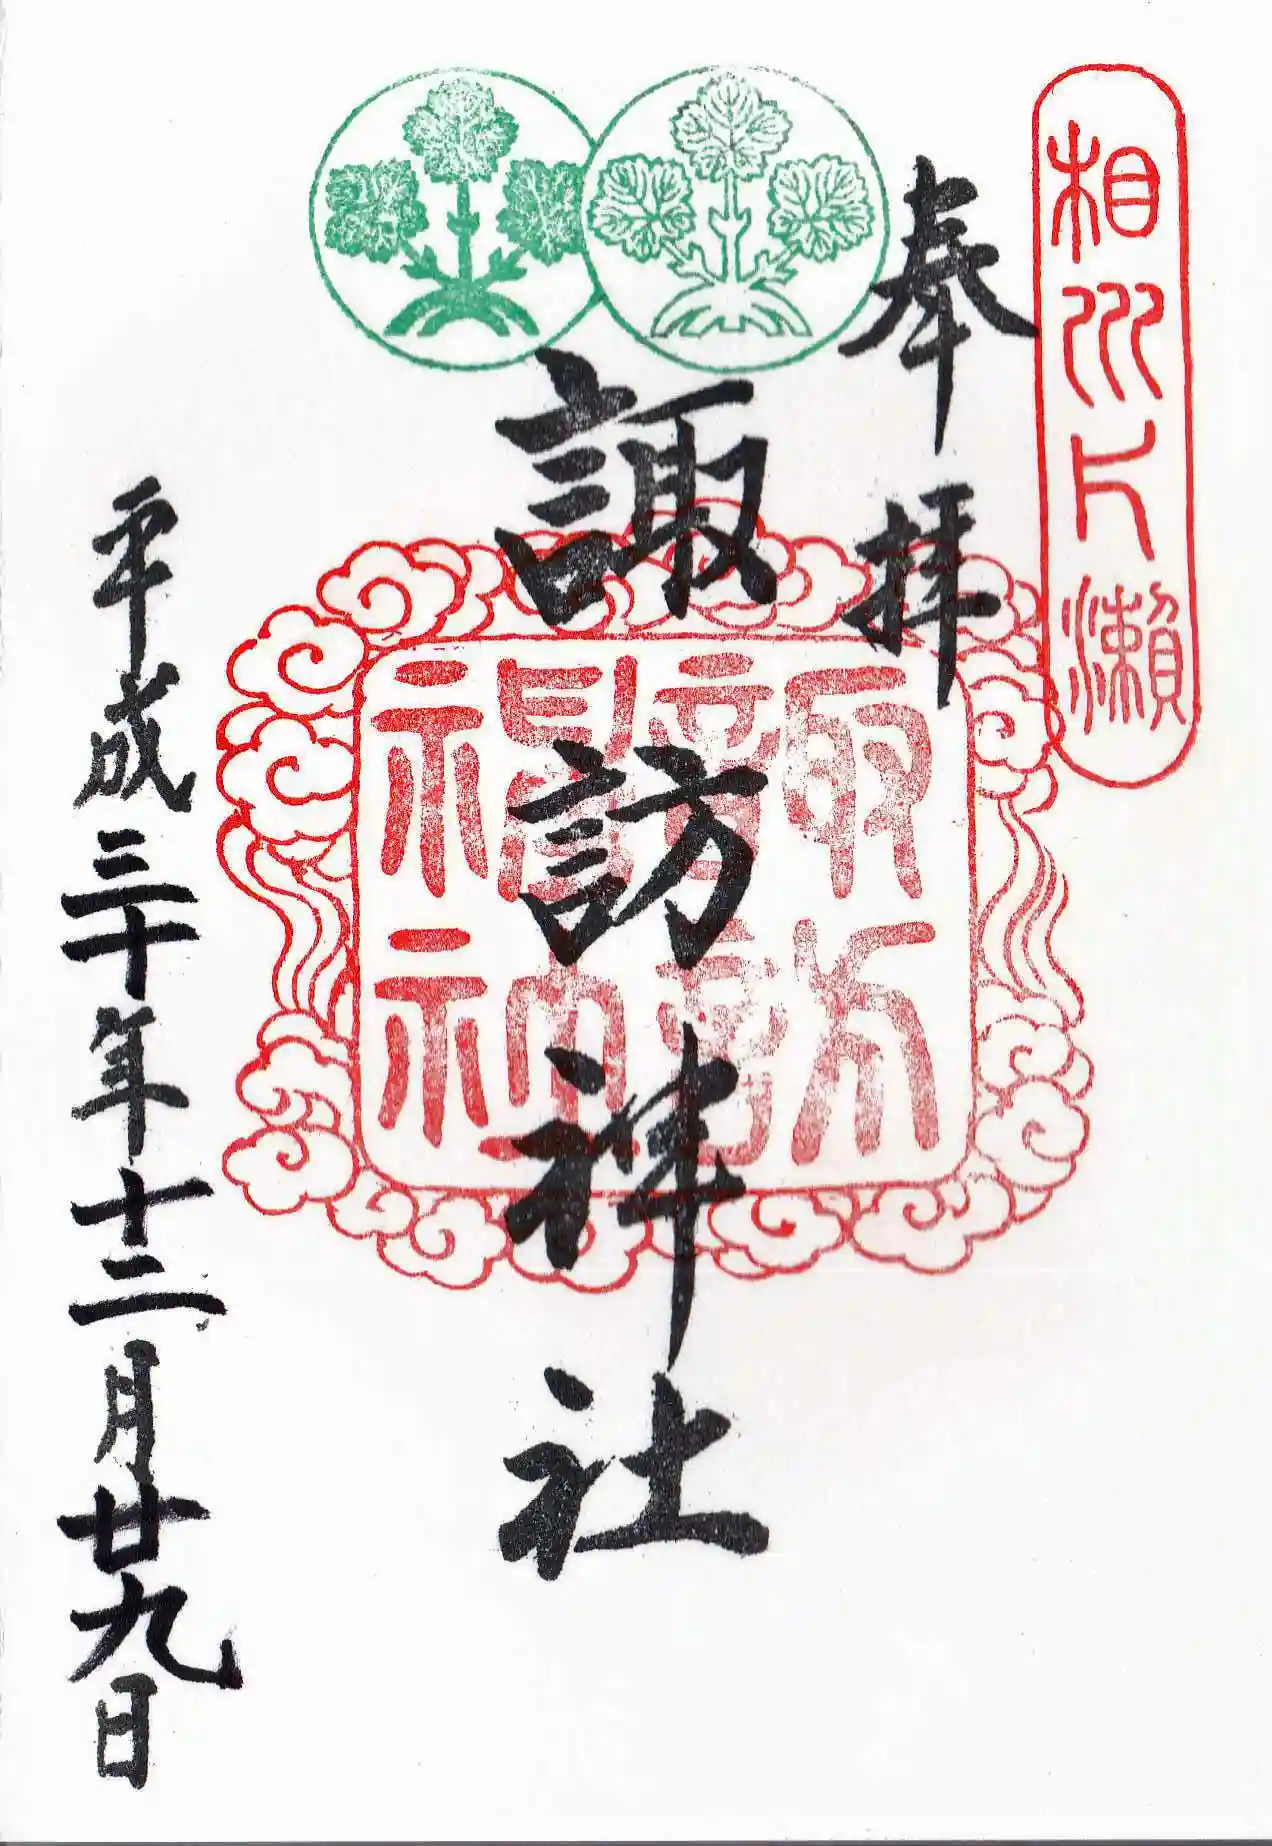 相州片瀬
奉拝
諏訪神社
諏訪神社
平成三十年十二月廿九日